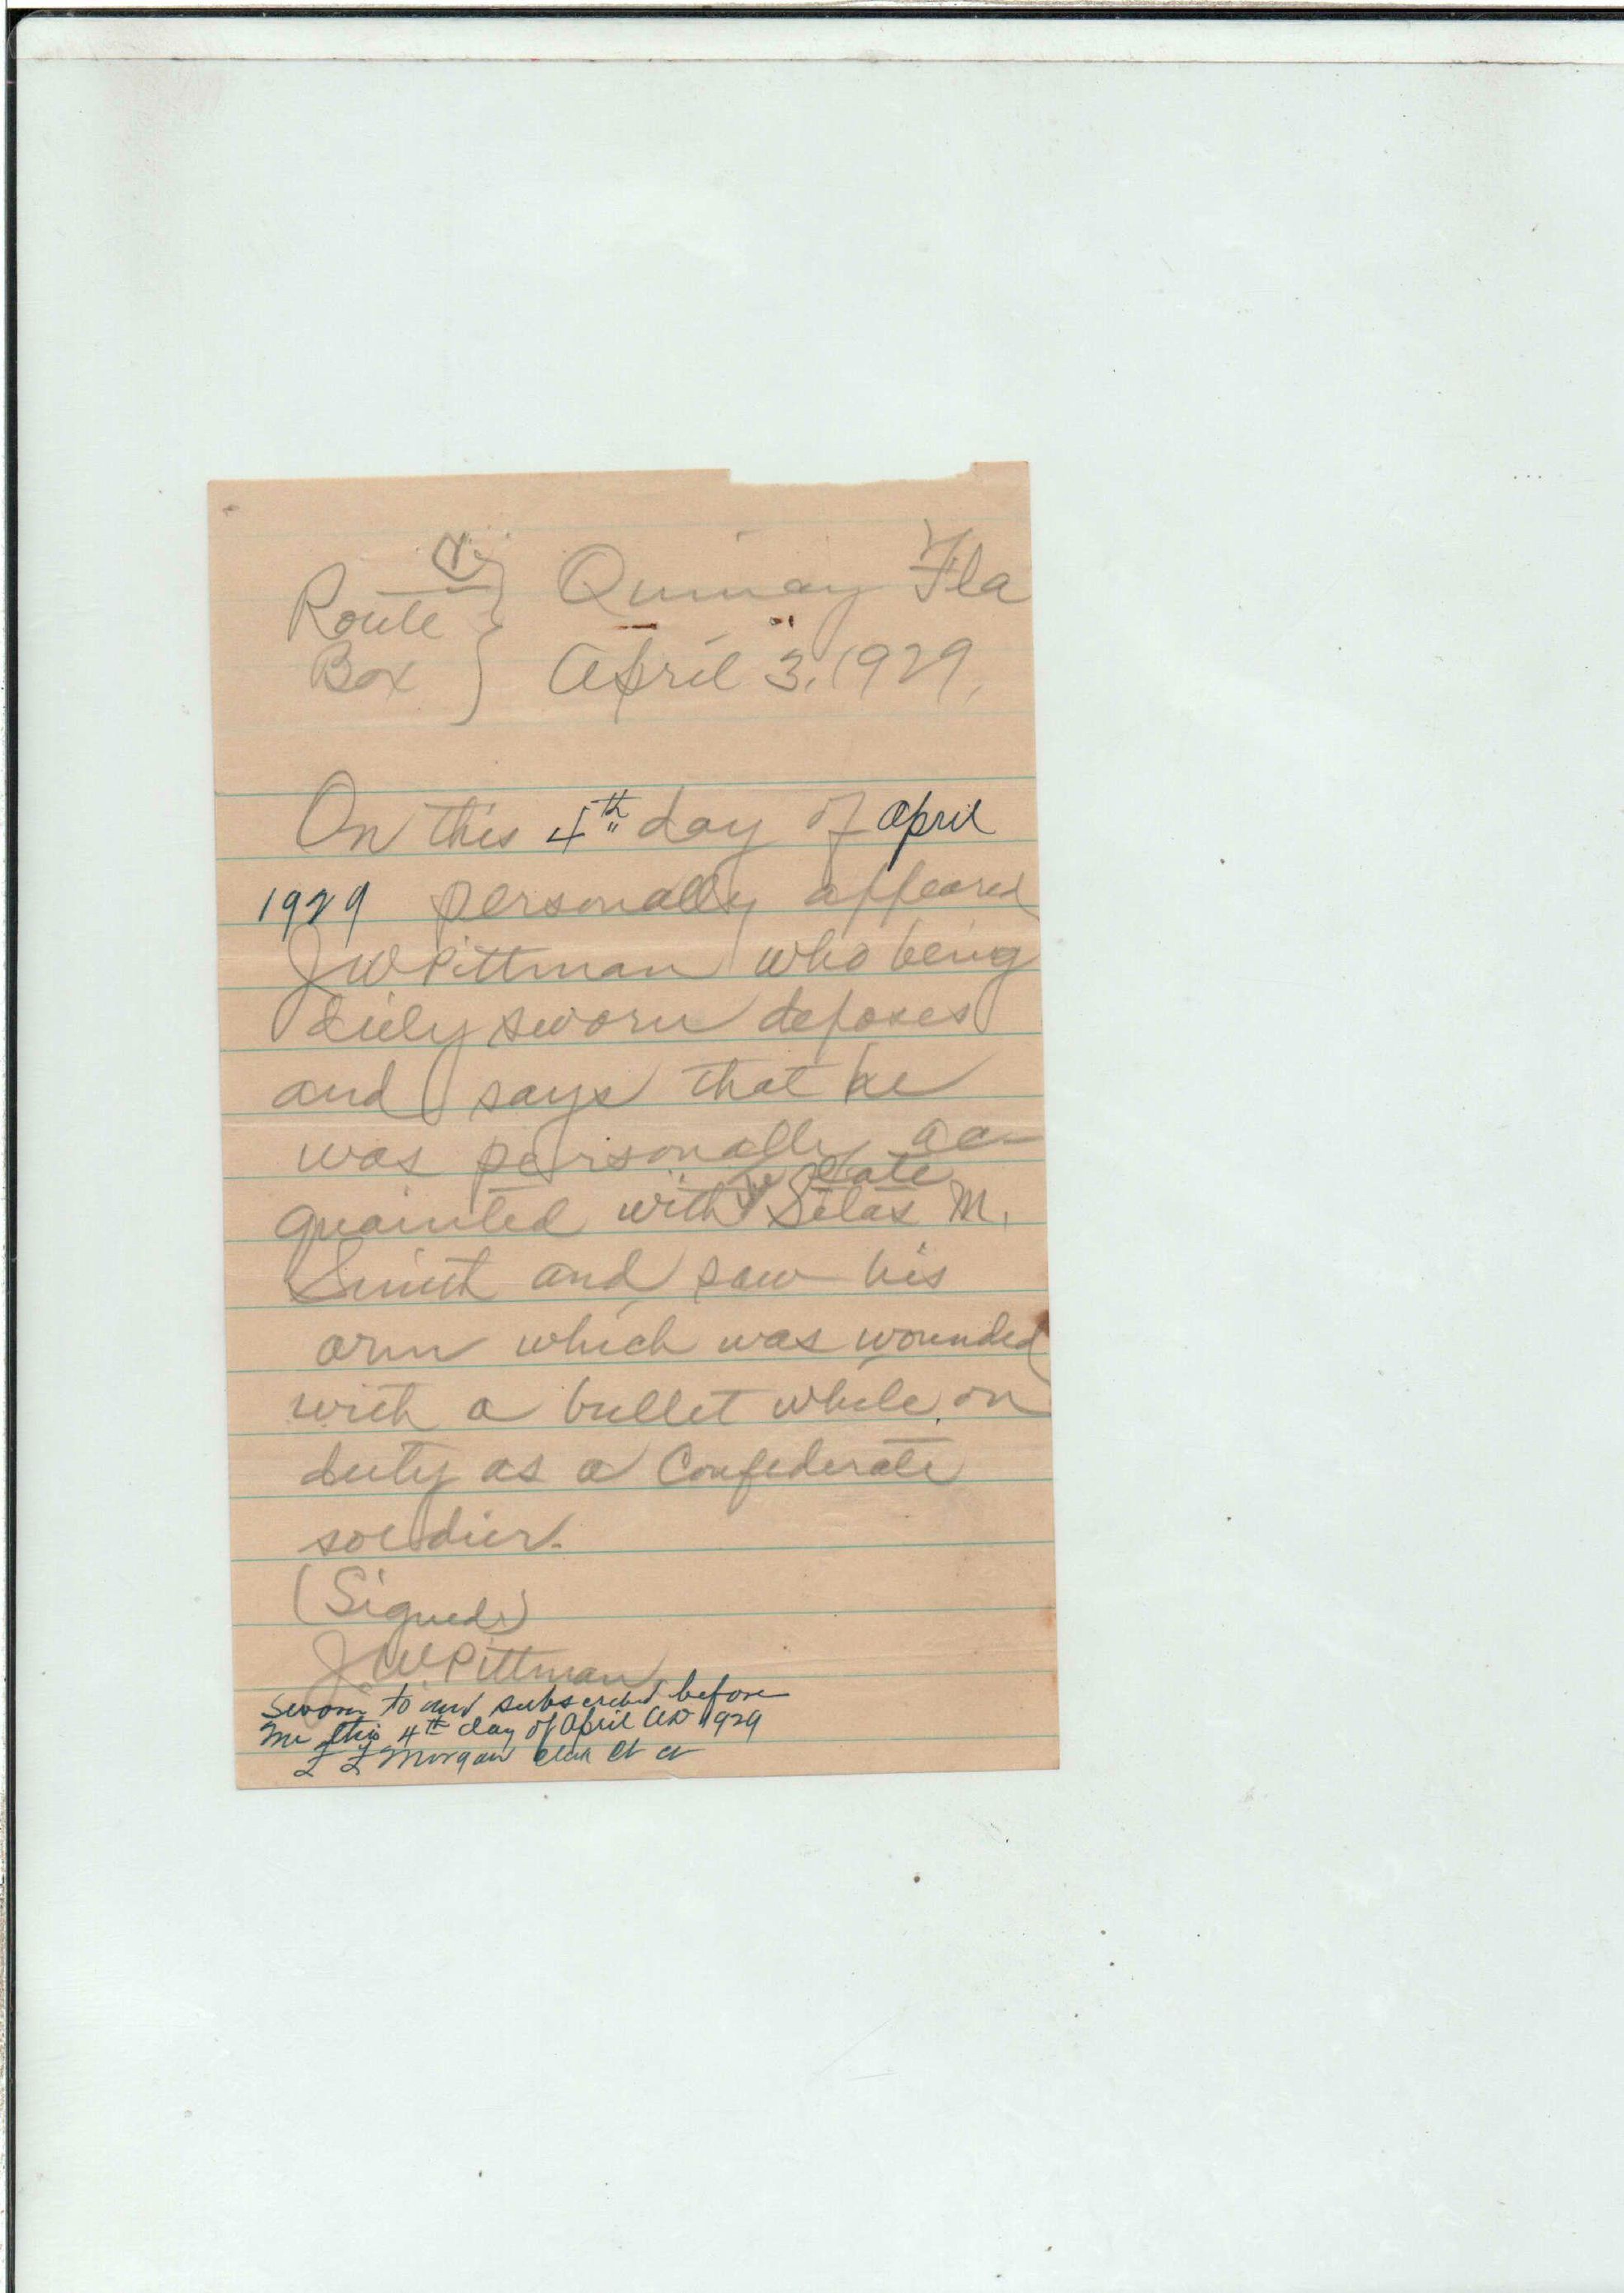 Route
Box
Quincy Fla
April 3, 1929,
On this 4th day of April
1929 personally appeared
J W Pittman who being
duly sworn deposes
and says that he
was personally ac-
late
quainted with Silas M.
Smith and saw his
arm which was wounded
with a bullet while on
duty as a Confederate
soldier.
(Signed)
J. W. Pittman
Sworn to and subscribed before
me this 4th day of April AD 1929
Morgan Clerk Ct Ct